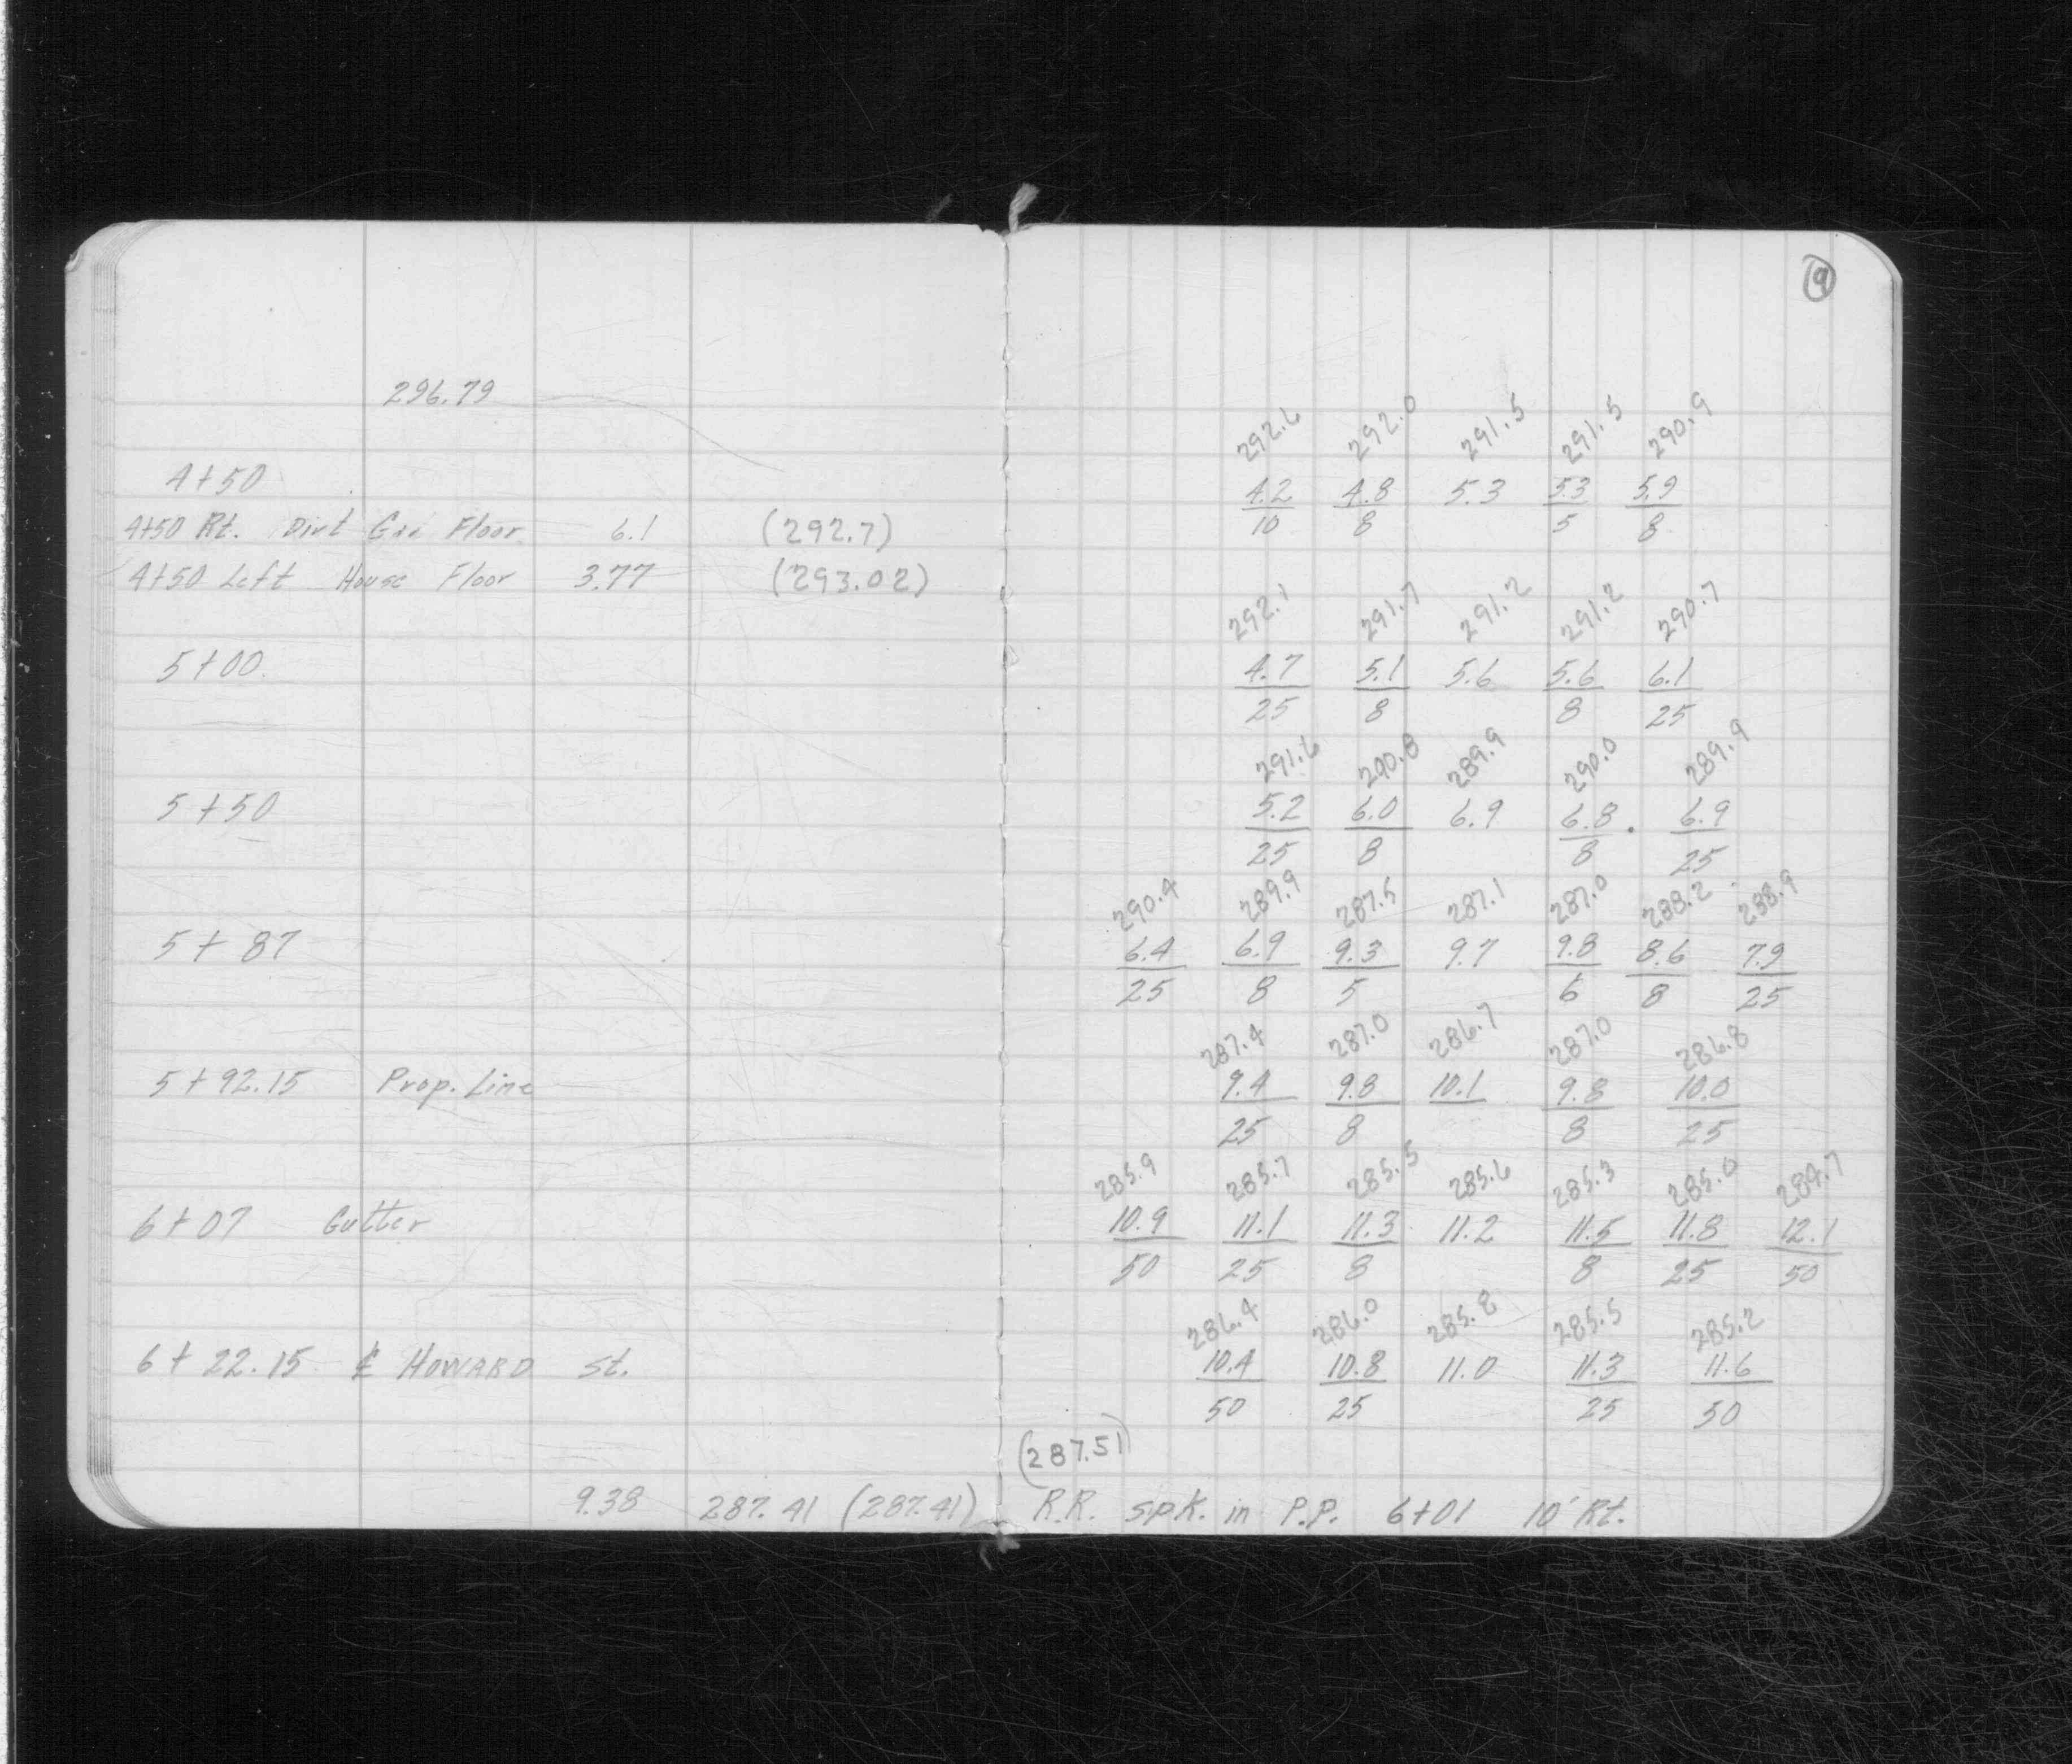 9
296.79
292.6 292.0 291.5 291.5 290.9
4+50 4.2/10 4.8/8 5.3 5.3/5 5.9/8
4+50 Rt. Dirt Floor 6.1 (292.7)
4+50 Left House Floor 3.77 (293.02)
292.1 291.7 291.2 291.2 290.7
5+00 4.7/25 5.1/8 5.6 5.6/8 6.1/25
291.6 290.8 289.9 290.0 289.9
5+50 5.2/25 6.0/8 6.9 6.8/8 6.9/25
290.4 289.9 287.5 287.1 287.0 288.2 288.9
5+87 6.4/25 6.9/8 9.3/5 9.7 9.8/6 8.6/8 7.9/25
287.4 287.0 286.7 287.0 286.8
5+92.15 Prop. Line 9.4/25 9.8/8 10.1 9.8/8 10.0/25
285.9 285.7 285.5 285.6 285.3 285.0 284.7
6+07 Gutter 10.9/50 11.1/25 11.3/8 11.2 11.5/8 11.8/25 12.1/50
286.4 286.0 285.8 285.5 285.2
6+22.15 ℄ HOWARD St. 10.4/50 10.8/25 11.0 11.3/25 11.6/50
(287.51)
9.38 287.41 (287.41) R.R. spk. in P.P. 6+01 10' Rt.